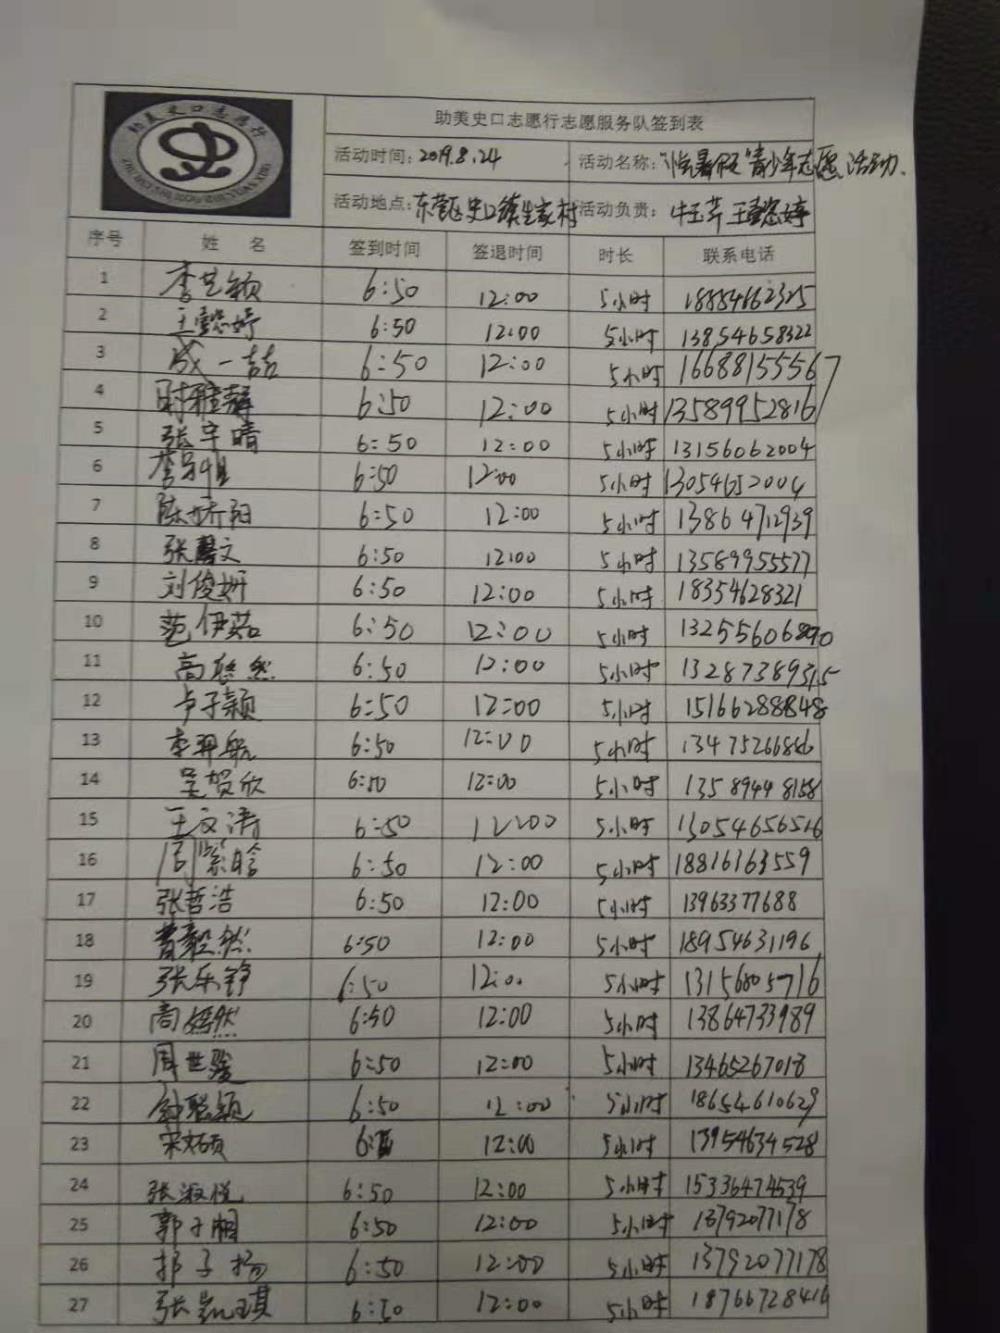 助美史口志愿行
ZHU MEI SHI KOU ZHI YUAN XING
助美史口志愿行志愿服务队签到表
活动时间：2019.8.24 活动名称："悦暑假"青少年志愿活动.
活动地点：东营区史口镇 家村 活动负责：牛玉芹 王懿婷
序号 姓 名 签到时间 签退时间 时长 联系电话
1 李艺颖 6:50 12:00 5小时 18884662325
2 王懿婷 6:50 12:00 5小时 13854658322
3 成一喆 6:50 12:00 5小时 16688155567
4 时雅静 6:50 12:00 5小时 13589952816
5 张宇晴 6:50 12:00 5小时 13156062004
6 李 恒 6:50 12:00 5小时 13054652004
7 陈娇阳 6:50 12:00 5小时 13864712939
8 张馨文 6:50 12:00 5小时 13589955577
9 刘俊妍 6:50 12:00 5小时 18354628321
10 范伊茹 6:50 12:00 5小时
11 高 然 6:50 12:00 5小时
12 卢子颖 6:50 12:00 5小时 15166288848
13 李羿航 6:50 12:00 5小时
14 吴贺欣 6:50 12:00 5小时 13589448158
15 王文涛 6:50 12:00 5小时 13054656516
16 周紫晗 6:50 12:00 5小时 18816363559
17 张哲浩 6:50 12:00 5小时 13963377688
18 曹毅然 6:50 12:00 5小时 18954631196
19 张乐铮 6:50 12:00 5小时 13156805716
20 高嫣然 6:50 12:00 5小时 13864733989
21 周世骏 6:50 12:00 5小时 13465267018
22 聪颖 6:50 12:00 5小时 18654610629
23 宋炳硕 12:00 5小时 13954634528
24 张淑悦 6:50 12:00 5小时 15336474539
25 郭子湘 6:50 12:00 5小时 13792077178
26 郭子扬 6:50 12:00 5小时 13792077178
27 张凯琪 6:50 12:00 5小时 18766728416